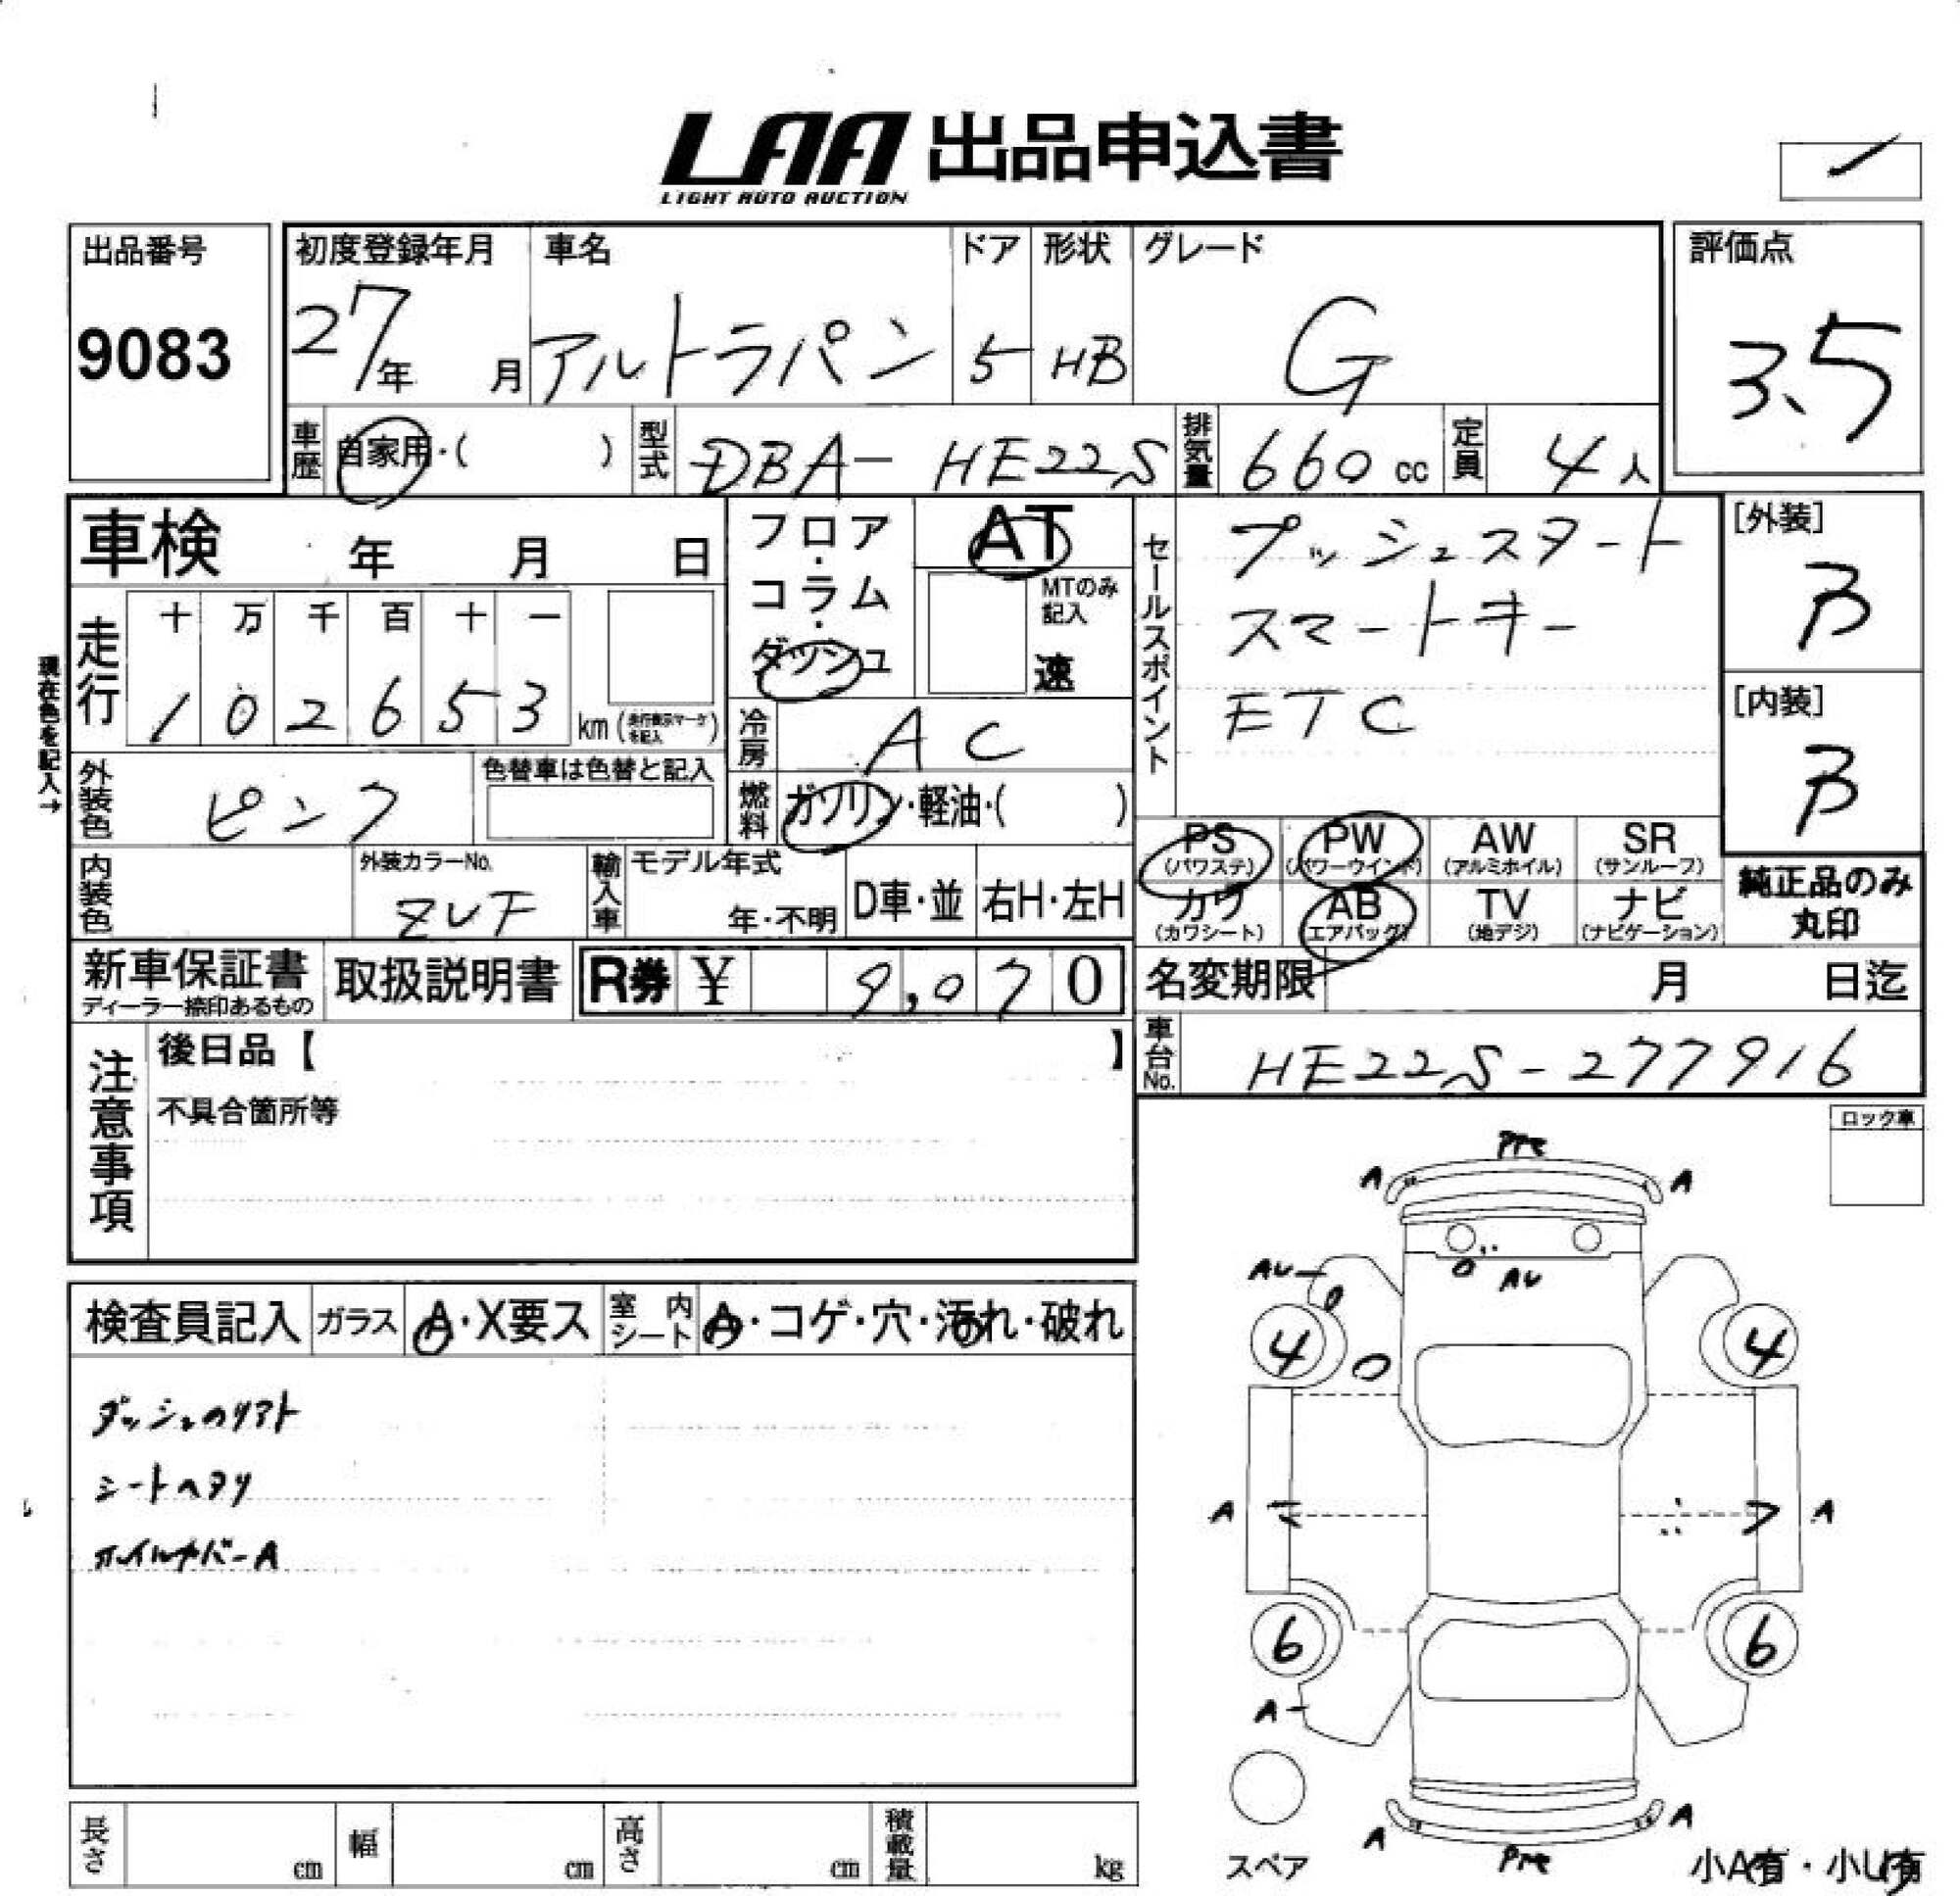 LAA 出品申込書
LIGHT AUTO AUCTION
出品番号
9083
初度登録年月
27年 月
車名
アルトラパン
ドア
5
形状
HB
グレード
G
評価点
3.5
車歴
自家用・( )
型式
DBA- HE22S
排気量
660 cc
定員
4人
車検 年 月 日
フロア・コラム・ダッシュ
AT
MTのみ記入
速
セールスポイント
プッシュスタート
スマートキー
ETC
[外装]
B
[内装]
B
現在色を記入→
走行
十 万 千 百 十 一
1 0 2 6 5 3
km (走行表示マークを記入)
冷房
AC
外装色
ピンク
色替車は色替と記入
燃料
ガソリン・軽油・( )
内装色
外装カラーNo.
ZVF
輸入車
モデル年式
年・不明
D車・並
右H・左H
PS (パワステ)
PW (パワーウインド)
AW (アルミホイル)
SR (サンルーフ)
カワ (カワシート)
AB (エアバッグ)
TV (地デジ)
ナビ (ナビゲーション)
純正品のみ丸印
新車保証書
ディーラー捺印あるもの
取扱説明書
R券 ¥ 9,070
名変期限 月 日迄
車台No.
HE22S-277916
注意事項
後日品【 】
不具合箇所等
ロック車
検査員記入
ガラス
A・X要ス
室内シート
A・コゲ・穴・汚れ・破れ
ダッシュのリアト
シートヘタリ
ホイルカバーA
Pre
A A
AU
AU
4 4
A A
6 6
A
A A
Pre
スペア
小A有・小U有
長さ cm
幅 cm
高さ cm
積載量 kg